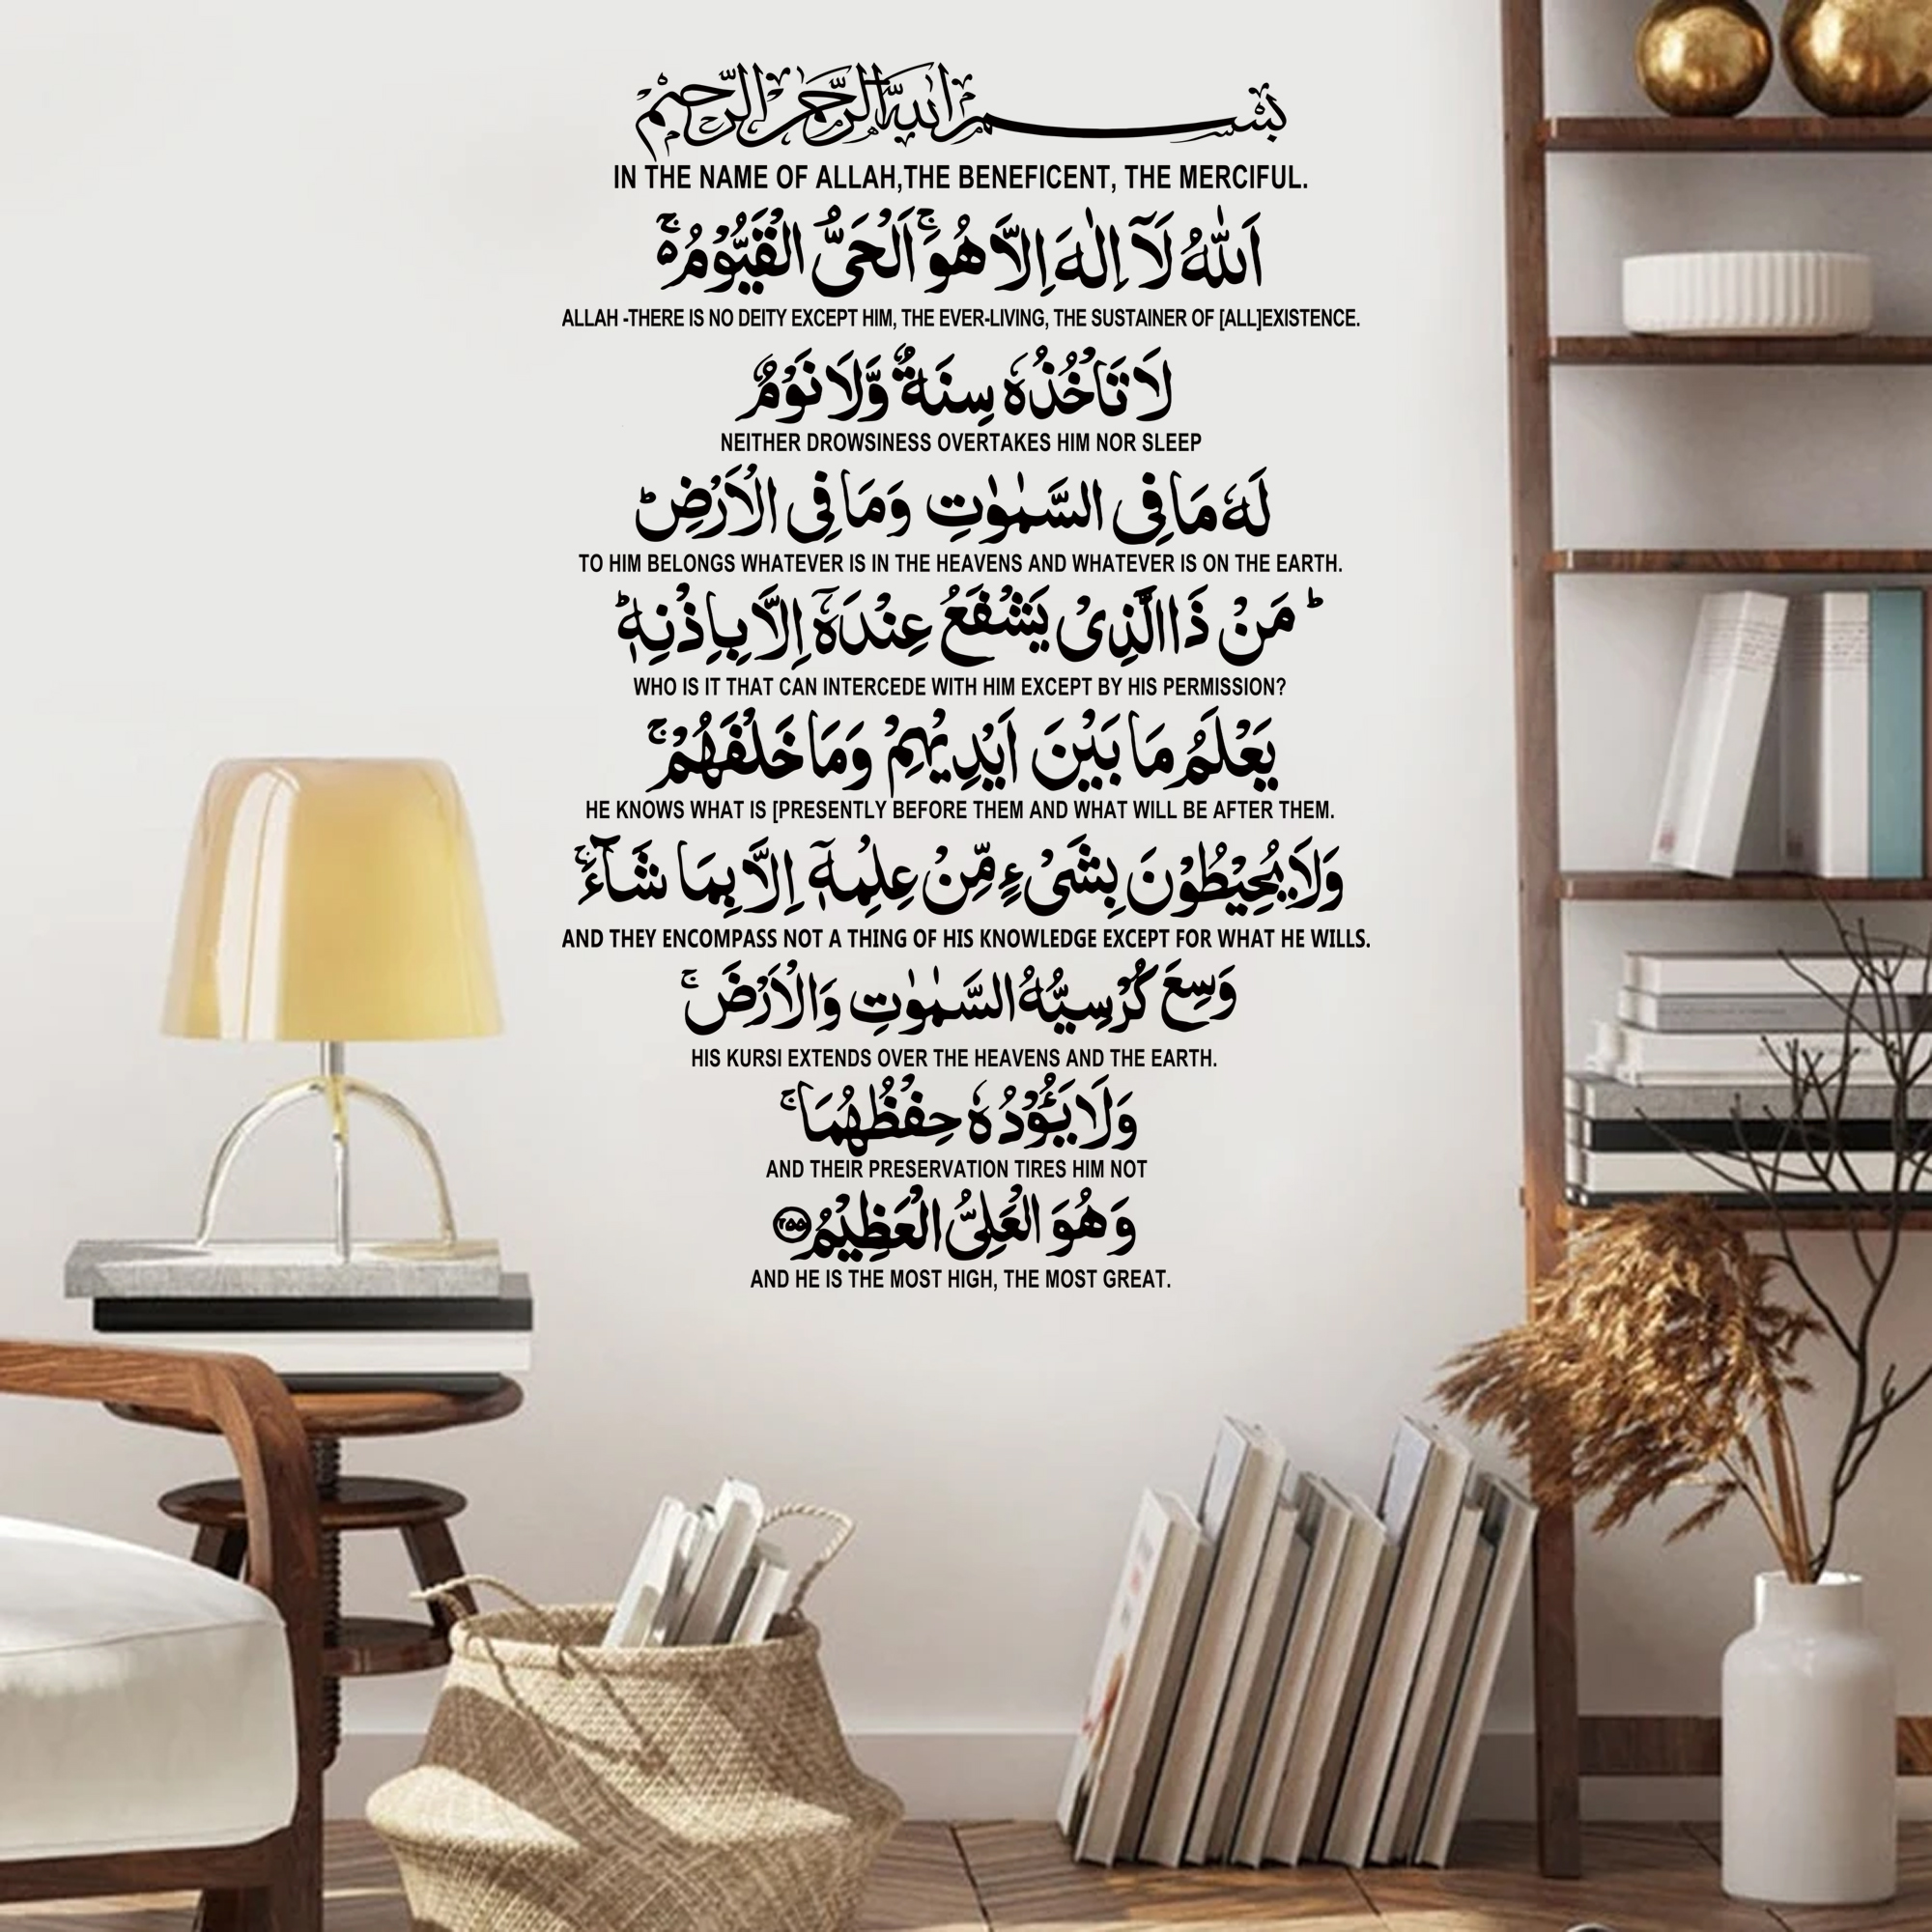 بِسْمِ اللهِ الرَّحْمٰنِ الرَّحِيْمِ
IN THE NAME OF ALLAH,THE BENEFICENT, THE MERCIFUL.
اَللّٰهُ لَآ اِلٰهَ اِلَّا هُوَ ۚ اَلْحَیُّ الْقَیُّوْمُ ۚ۬
ALLAH -THERE IS NO DEITY EXCEPT HIM, THE EVER-LIVING, THE SUSTAINER OF [ALL]EXISTENCE.
لَا تَاْخُذُهٗ سِنَةٌ وَّلَا نَوْمٌ
NEITHER DROWSINESS OVERTAKES HIM NOR SLEEP
لَهٗ مَا فِی السَّمٰوٰتِ وَمَا فِی الْاَرْضِ ؕ
TO HIM BELONGS WHATEVER IS IN THE HEAVENS AND WHATEVER IS ON THE EARTH.
ؕ مَنْ ذَا الَّذِیْ یَشْفَعُ عِنْدَهٗۤ اِلَّا بِاِذْنِهٖ ؕ
WHO IS IT THAT CAN INTERCEDE WITH HIM EXCEPT BY HIS PERMISSION?
یَعْلَمُ مَا بَیْنَ اَیْدِیْهِمْ وَمَا خَلْفَهُمْ ۚ
HE KNOWS WHAT IS [PRESENTLY BEFORE THEM AND WHAT WILL BE AFTER THEM.
وَلَا یُحِیْطُوْنَ بِشَیْءٍ مِّنْ عِلْمِهٖۤ اِلَّا بِمَا شَآءَ ۚ
AND THEY ENCOMPASS NOT A THING OF HIS KNOWLEDGE EXCEPT FOR WHAT HE WILLS.
وَسِعَ كُرْسِیُّهُ السَّمٰوٰتِ وَالْاَرْضَ ۚ
HIS KURSI EXTENDS OVER THE HEAVENS AND THE EARTH.
وَلَا یَـُٔوْدُهٗ حِفْظُهُمَا ۚ
AND THEIR PRESERVATION TIRES HIM NOT
وَهُوَ الْعَلِیُّ الْعَظِیْمُ ۲۵۵
AND HE IS THE MOST HIGH, THE MOST GREAT.